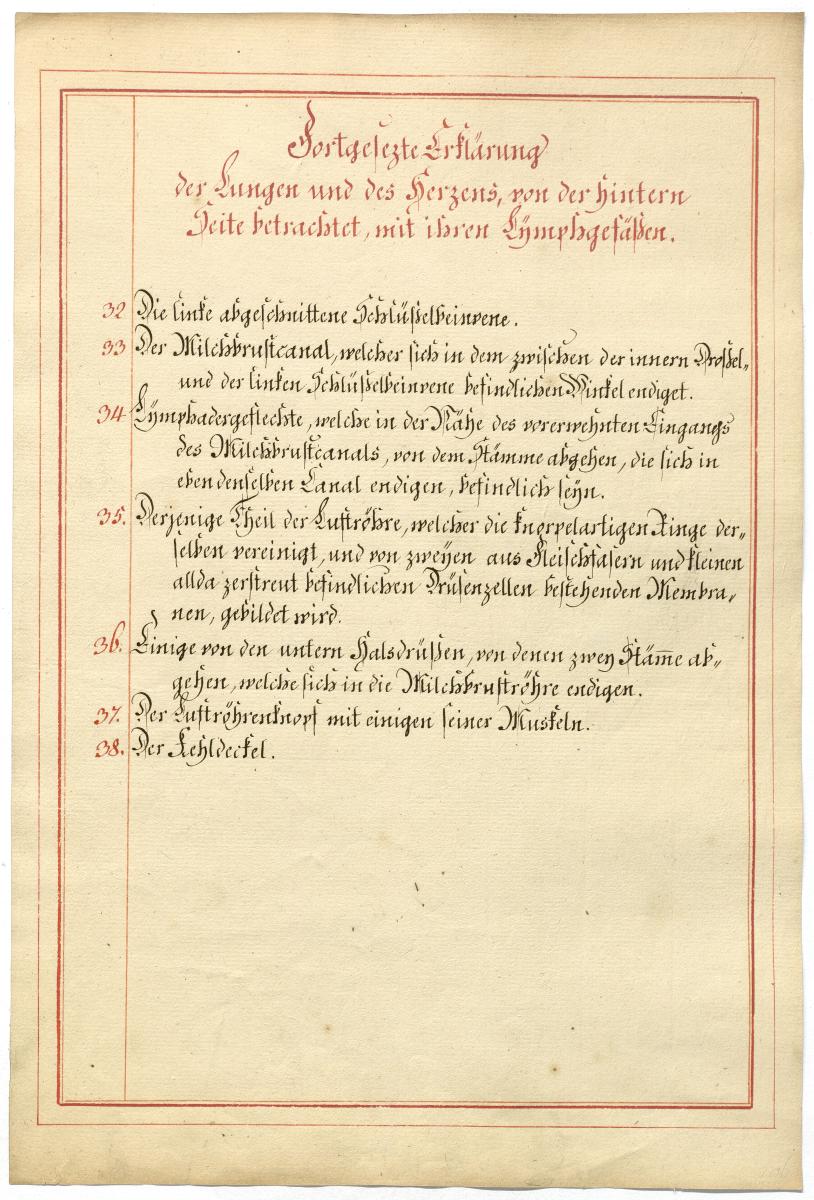 Fortgesezte Erklärung
der Lungen und des Herzens, von der hintern
Seite betrachtet, mit ihren Lymphgefäßen.
32 Die linke abgeschnittene Schlüßelbeinvene.
33 Der Milchbrustcanal, welcher sich in dem zwischen der innern Droßel„
und der linken Schlüßelbeinvene befindlichen Winkel endiget.
34 Lymphadergeflechte, welche in der Nähe des vorerwehnten Eingangs
des Milchbrustcanals, von dem Stämme abgehen, die sich in
eben denselben Canal endigen, befindlich seyn.
35. Derjenige Theil der Luftröhre, welcher die knorpelartigen Ringe der„
selben vereinigt, und von zweyen aus Fleischfasern und kleinen
allda zerstreut befindlichen Drüsenzellen bestehenden Membra„
nen, gebildet wird.
36. Einige von den untern Halsdrüßen, von denen zwey Stäm̅e ab„
gehen, welche sich in die Milchbruströhre endigen.
37. Der Luftröhrenknopf mit einigen seiner Muskeln.
38. Der Kehldeckel.